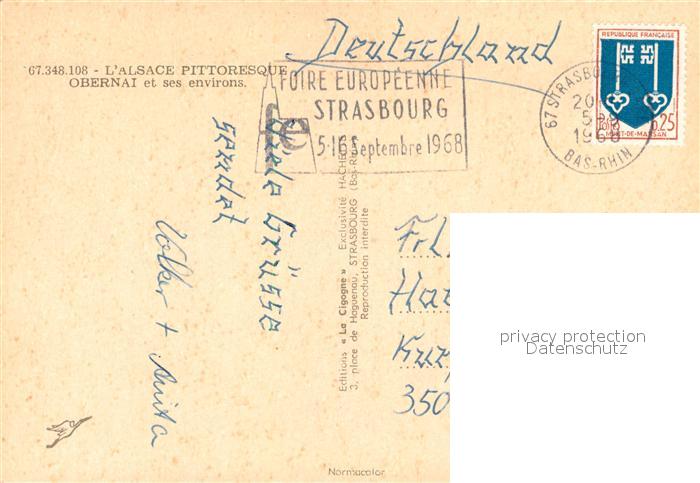 Deutschland
67.348.108 - L'ALSACE PITTORESQUE
OBERNAI et ses environs.
FOIRE EUROPÉENNE
STRASBOURG
5·16 Septembre 1968
67 STRASBOURG
1968
BAS-RHIN
REPUBLIQUE FRANÇAISE
0.25
MONT-DE-MARSAN
Viele Grüsse
sendet
Volker + Anita
Editions « La Cigogne » Exclusivité HACHETTE
3, place de Haguenau, STRASBOURG (Bas-Rhin)
Reproduction interdite
Frl.
350
privacy protection
Datenschutz
Normacolor